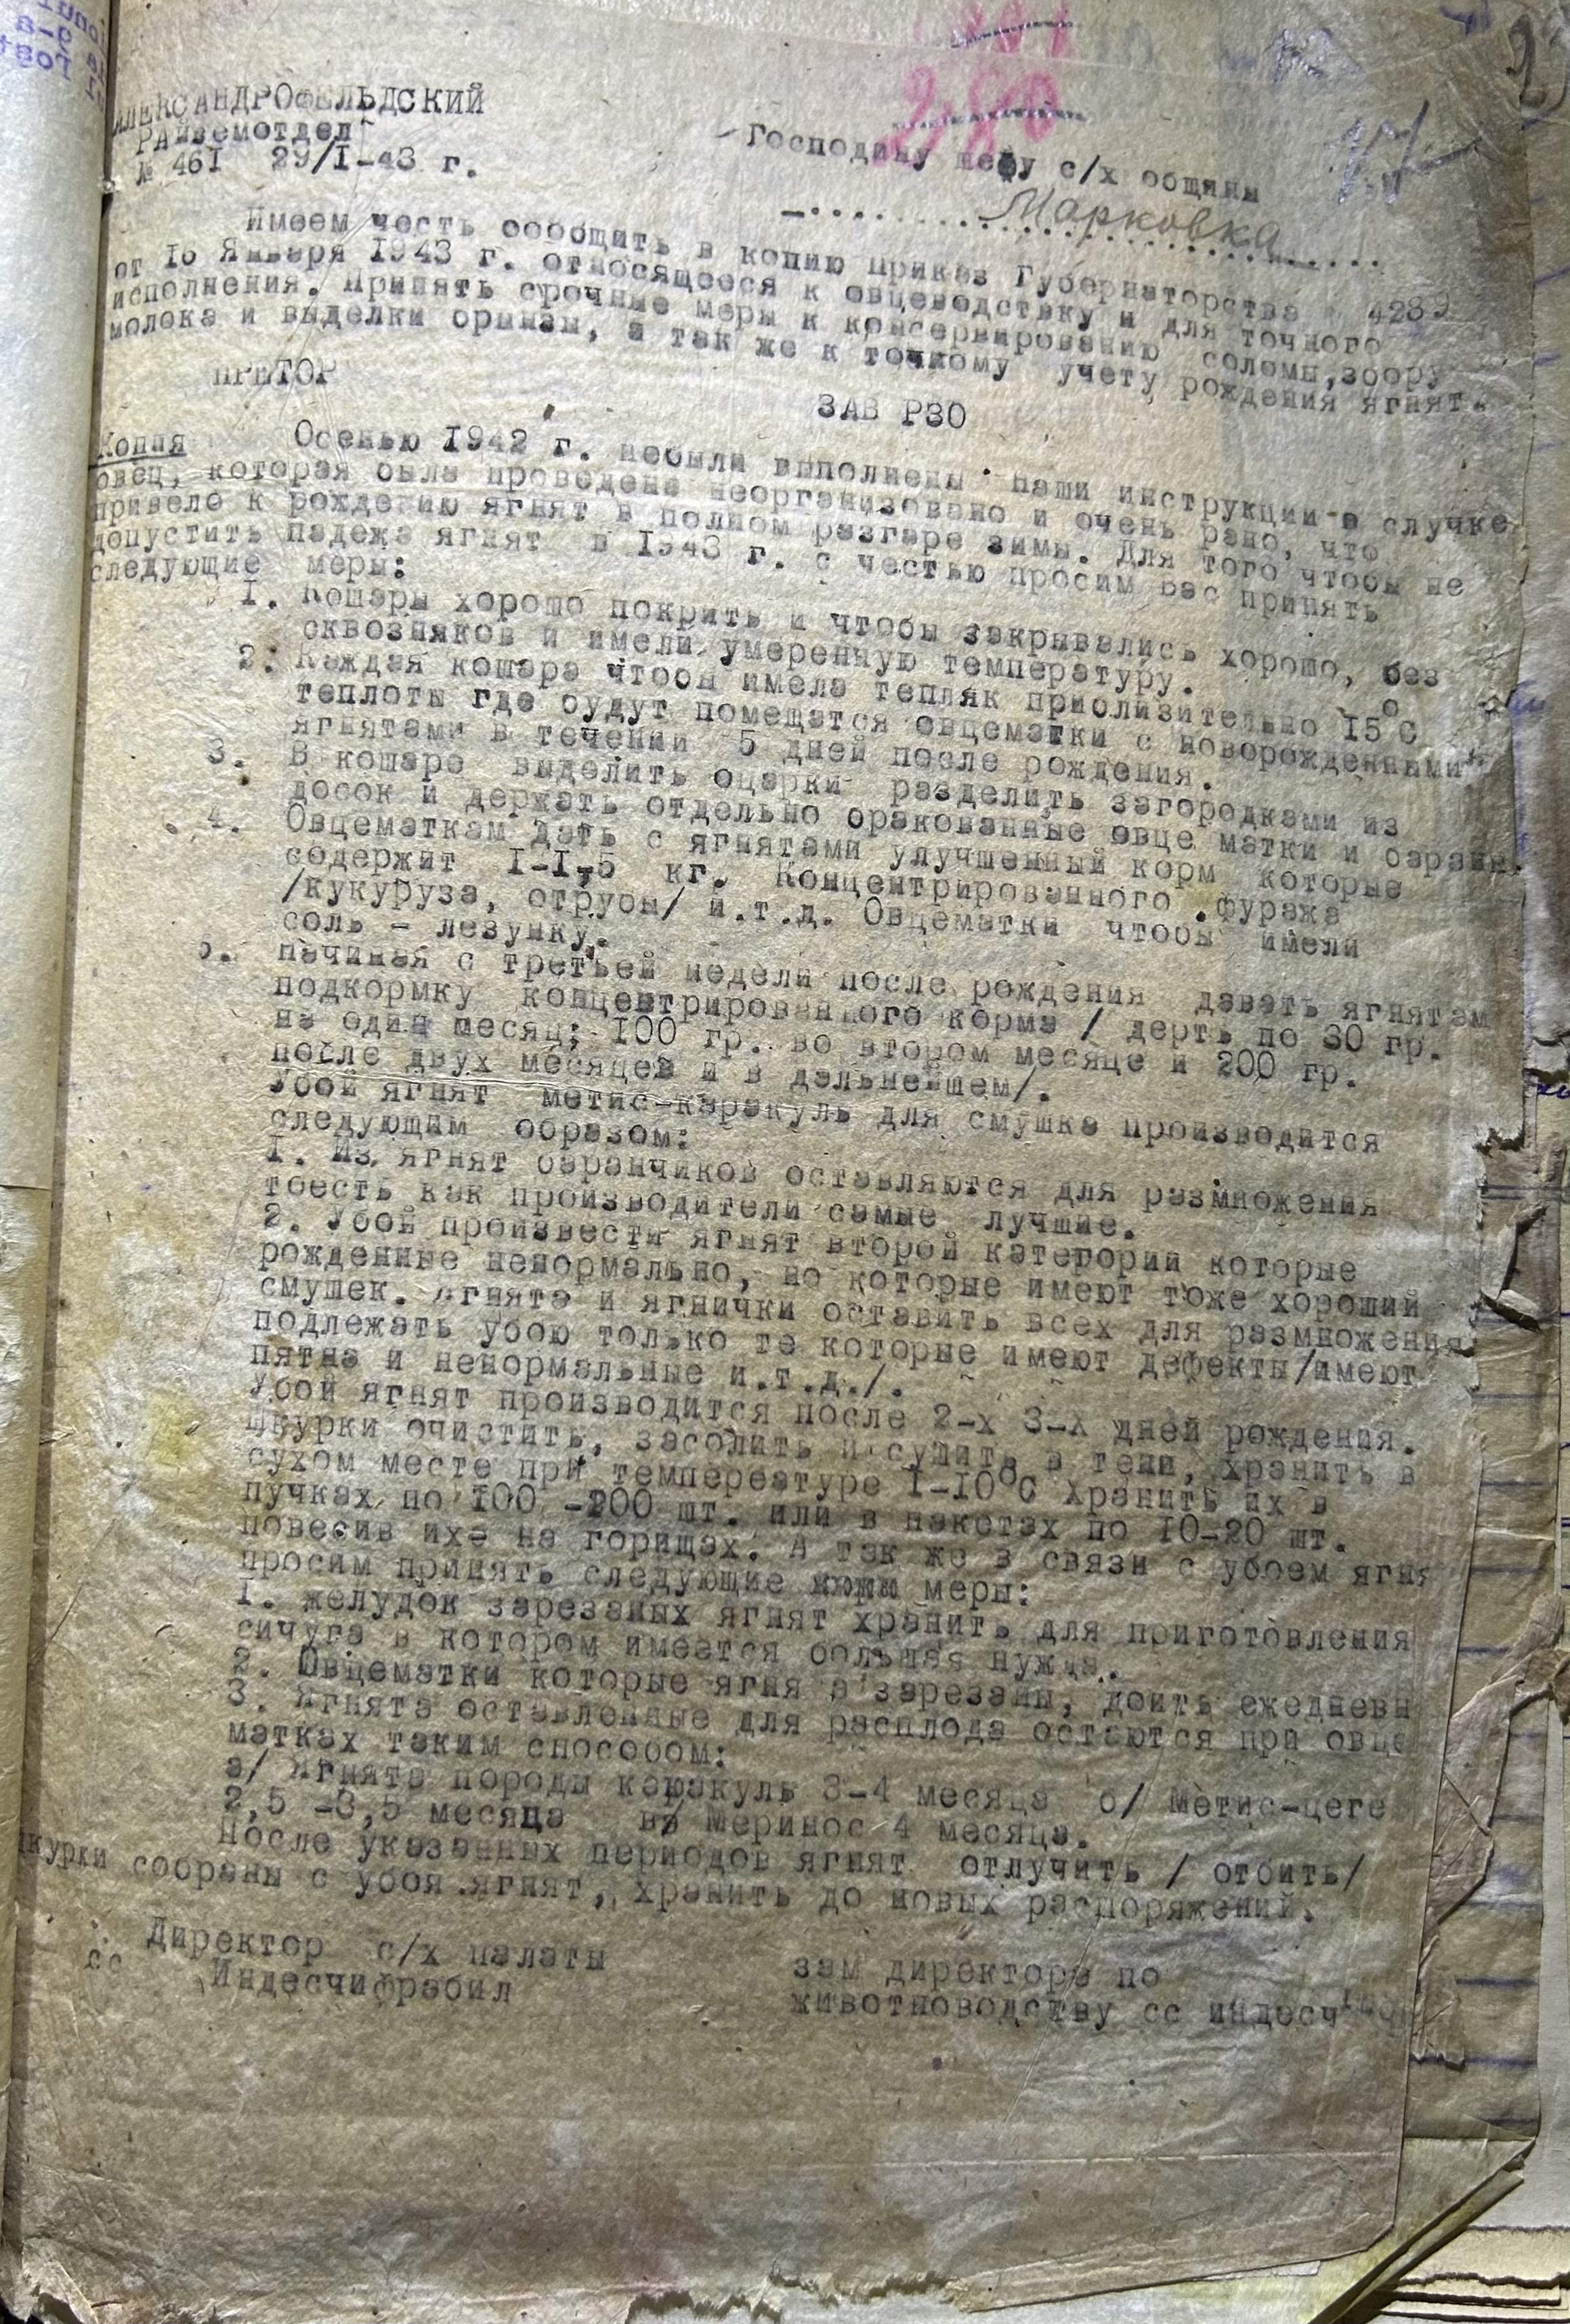 АЛЕКСАНДРОФЕЛЬДСКИЙ
Райземотдел
№ 461 29/I-43 г.
Господину шефу с/х общины
Марковка
Имеем честь сообщить в копию приказ Губернаторства 4289
от 16 Января 1943 г. относящееся к овцеводству и для точного
исполнения. Принять срочные меры к консервированию соломы, збору
молока и выделки брынзы, а так же к точному учету рождения ягнят.
ПРЕТОР
ЗАВ РЗО
Копия Осенью 1942 г. небыли выполнены наши инструкции в случке
овец, которая была проведена неорганизовано и очень рано, что
привело к рождению ягнят в полном разгаре зимы. Для того чтобы не
допустить падежа ягнят в 1943 г. с честью просим Вас принять
следующие меры:
1. Кошары хорошо покрить и чтобы закрывались хорошо, без
сквозняков и имели умеренную температуру.
2. Каждая кошара чтобы имела тепляк приблизительно 15°С
теплоты где будут помещатся овцематки с новорожденными
ягнятами в течении 5 дней после рождения.
3. В кошаре выделить оцарки разделить загородками из
досок и держать отдельно бракованные овце матки и бараны.
4. Овцематкам дать с ягнятами улучшенный корм которые
содержит I-I,5 кг. Концентрированного фуража
/кукуруза, отруби/ и.т.д. Овцематки чтобы имели
соль - лезунку.
5. Начиная с третьей недели после рождения давать ягнятам
подкормку концентрированного корма / дерть по 30 гр.
на один месяц; 100 гр. во втором месяце и 200 гр.
после двух месяцев и в дальнейшем/.
Убой ягнят метис-каракуль для смушка производится
следующим образом:
1. Из ягнят баранчиков оставляются для размножения
тоесть как производители самые лучшие.
2. Убой произвести ягнят второй категории которые
рожденные ненормально, но которые имеют тоже хороший
смушек. Ягнята и ягнички оставить всех для размножения
подлежать убою только те которые имеют дефекты/имеют
пятна и ненормальные и.т.д./.
Убой ягнят производится после 2-х 3-х дней рождения.
Шкурки очистить, засолить и сушить в тени, хранить в
сухом месте при темпереатуре 1-10°С Хранить их в
пучках по 100 -200 шт. или в пакетах по 10-20 шт.
повесив их на горищах. А так же в связи с убоем ягня
просим принять следующие меры:
1. желудок зарезаных ягнят хранить для приготовления
сичуга в котором имеется большая нужда.
2. Овцематки которые ягня а зарезаны, доить ежедневн
3. Ягнята оставленные для расплода остаются при овце
матках таким способом:
а/ Ягнята породы каракуль 3-4 месяца б/ Метис-цеге
2,5 -3,5 месяца в/ Меринос 4 месяца.
После указанных периодов ягнят отлучить / отбить/
шкурки собраны с убоя ягнят, хранить до новых распоряжений.
Директор с/х палаты
сс Индесчифрабил
зам директора по
животноводству сс индесч